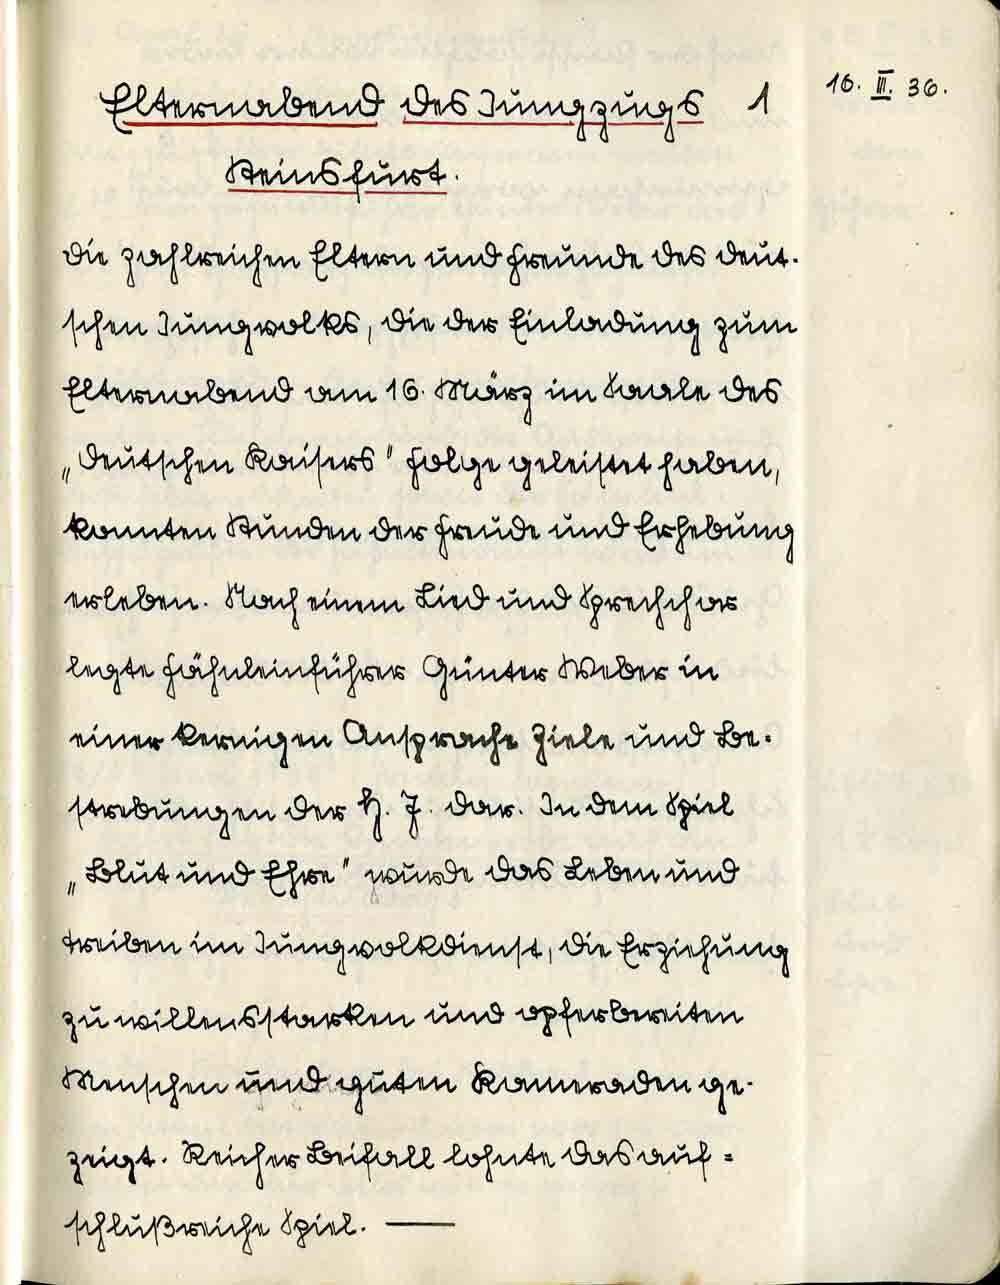 Elternabend des Jungzugs 1
16. III. 36.
Steinsfurt.
Die zahlreichen Eltern und Freunde des Deut-
schen Jungvolks, die der Einladung zum
Elternabend am 16. März im Saale des
„Deutschen Kaisers" Folge geleistet haben,
konnten Stunden der Freude und Erhebung
erleben. Nach einem Lied und Sprechchor
legte Fähnleinführer Günter Weber in
einer kernigen Ansprache Ziele und Be-
strebungen der H. J. dar. In dem Spiel
„Blut und Ehre" wurde das Leben und
Treiben im Jungvolkdienst, die Erziehung
zu willensstarken und opferbereiten
Menschen und guten Kameraden ge-
zeigt. Reicher Beifall lohnte das auf=
schlußreiche Spiel. —